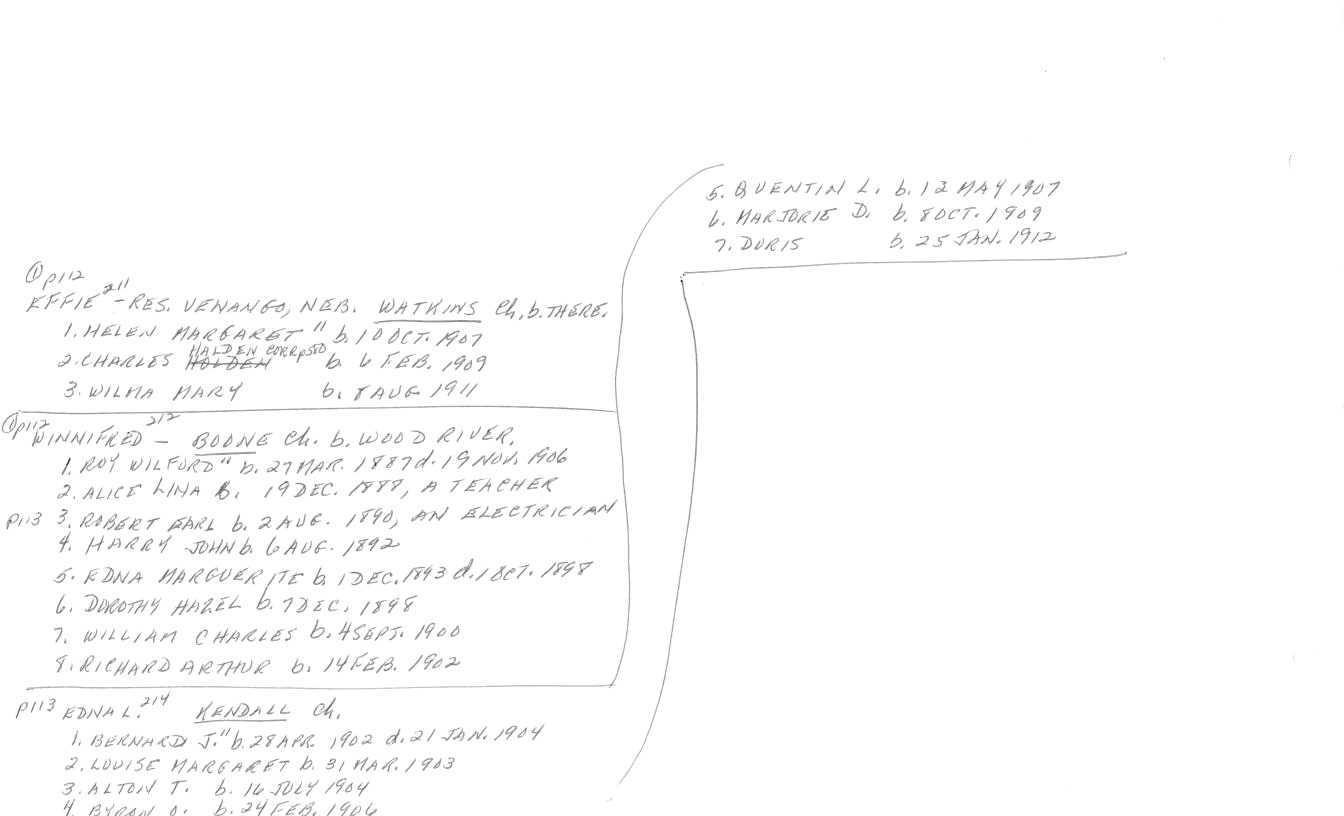 ① p112
EFFIE 211 - RES. VENANGO, NEB. WATKINS Ch. b. THERE.
1. HELEN MARGARET " b. 10 OCT. 1907
HALDEN CORR p580
2. CHARLES HOLDEN b. 6 FEB. 1909
3. WILMA MARY b. 8 AUG 1911
① p112
WINNIFRED 212 - BOONE Ch. b. WOOD RIVER.
1. ROY WILFORD " b. 27 MAR. 1887 d. 19 NOV. 1906
2. ALICE LINA B. 19 DEC. 1888, A TEACHER
p113 3. ROBERT EARL b. 2 AUG. 1890, AN ELECTRICIAN
4. HARRY JOHN b. 6 AUG. 1892
5. EDNA MARGUERITE b. 1 DEC. 1893 d. 1 OCT. 1898
6. DOROTHY HAZEL b. 7 DEC. 1898
7. WILLIAM CHARLES b. 4 SEPT. 1900
8. RICHARD ARTHUR b. 14 FEB. 1902
p113 EDNA L. 214 KENDALL Ch.
1. BERNARD J. " b. 28 APR. 1902 d. 21 JAN. 1904
2. LOUISE MARGARET b. 31 MAR. 1903
3. ALTON T. b. 16 JULY 1904
4. BYRON O. b. 24 FEB. 1906
5. QUENTIN L. b. 12 MAY 1907
6. MARJORIE D. b. 8 OCT. 1909
7. DORIS b. 25 JAN. 1912